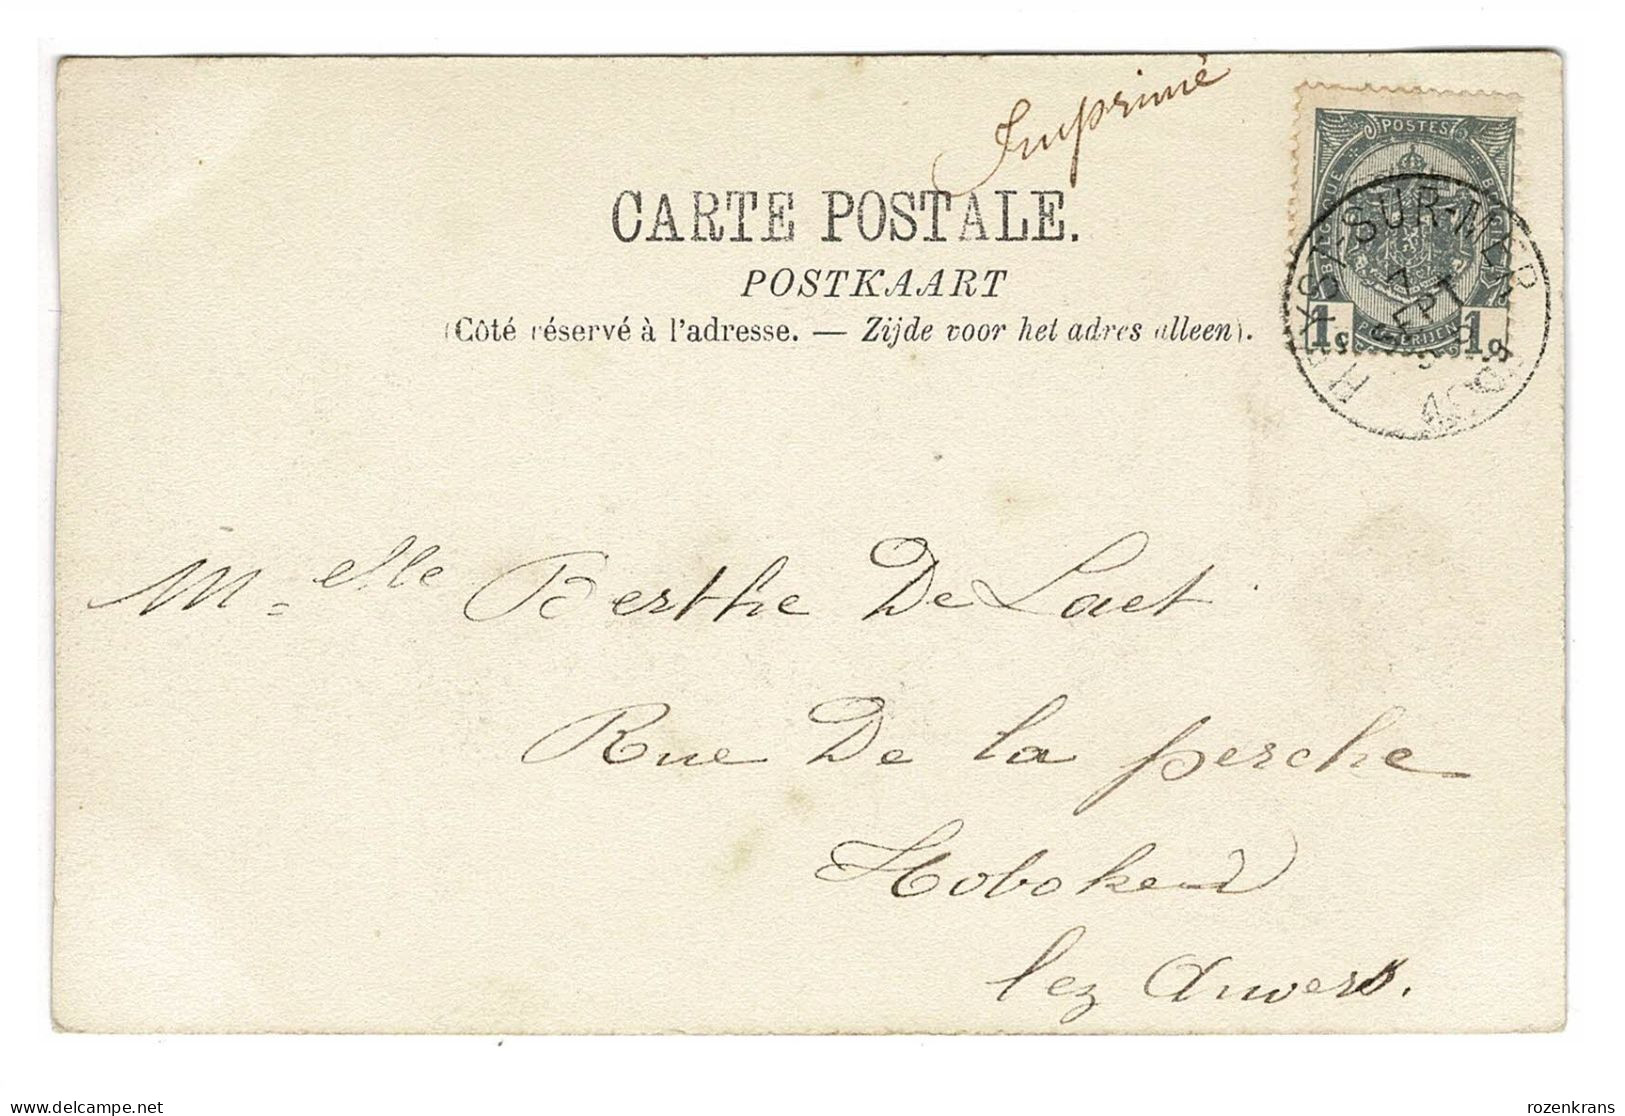 Imprimé
CARTE POSTALE.
POSTKAART
(Côté réservé à l'adresse. — Zijde voor het adres alleen).
POSTES
BELGIQUE
1c 1c
POSTERIJEN
HEYST-SUR-MER
7
SEPT
1903
Melle Berthe De Laet.
Rue De la perche
Hoboken
lez Anvers.
rozenkrans